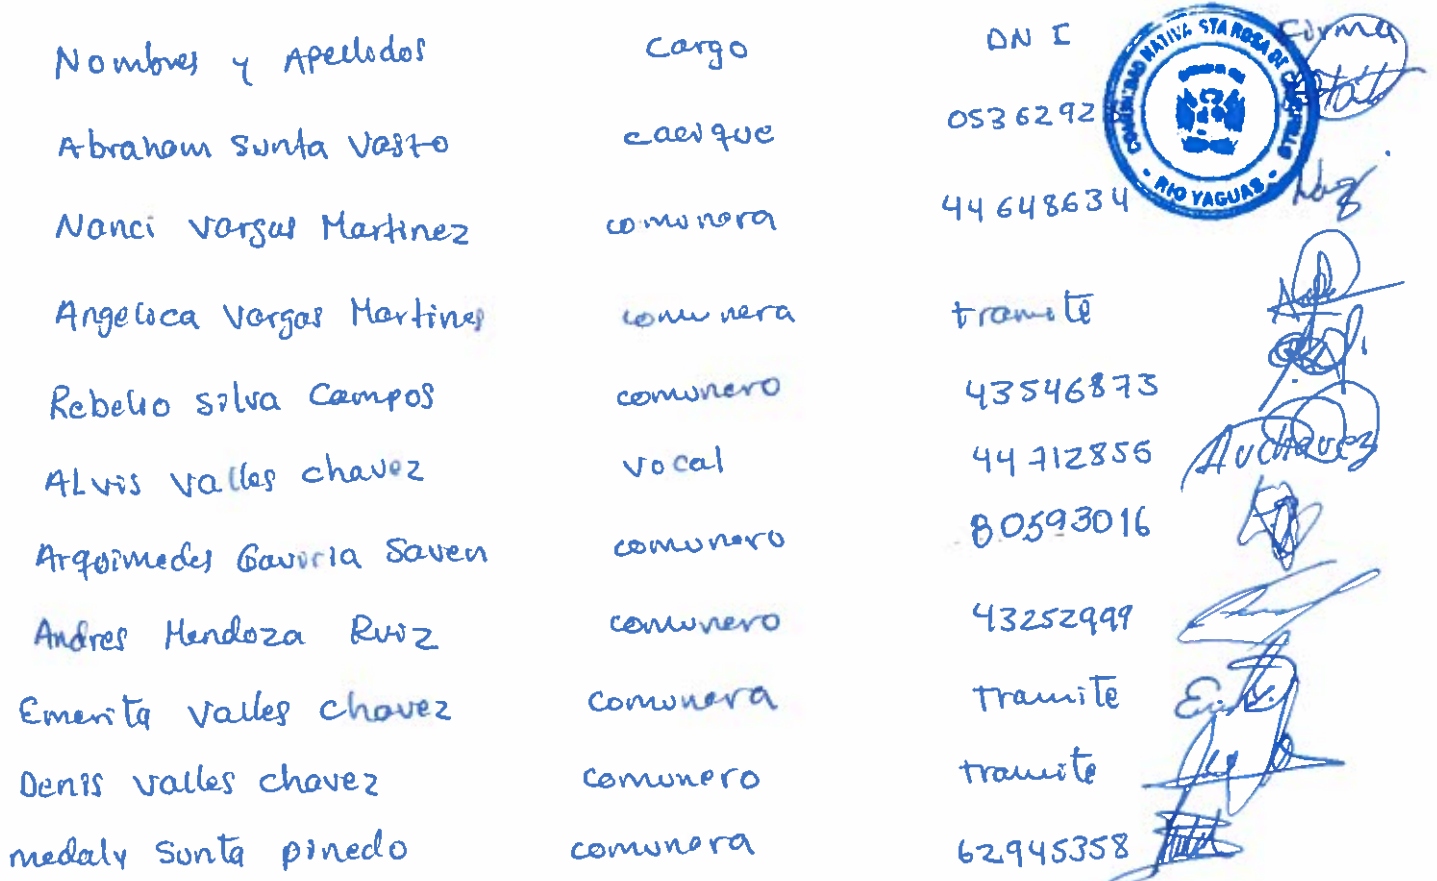 Nombres y Apellidos Cargo DNI Firma
Abraham Sunta Vasto cacique 0536292
COMUNIDAD NATIVA STA ROSA DE
RIO YAGUAS
Nanci Vargas Martinez comunera 44648634
Angelica Vargas Martines comunera tramite
Rebelio Silva Campos comunero 43546873
ALvis Valles chavez vocal 44712856
Arqoimedes Gaviria Saven comunero 80593016
Andres Mendoza Ruiz comunero 43252999
Emerita Valles chavez comunera tramite
Denis Valles chavez comunero tramite
medaly Sunta pinedo comunera 62945358